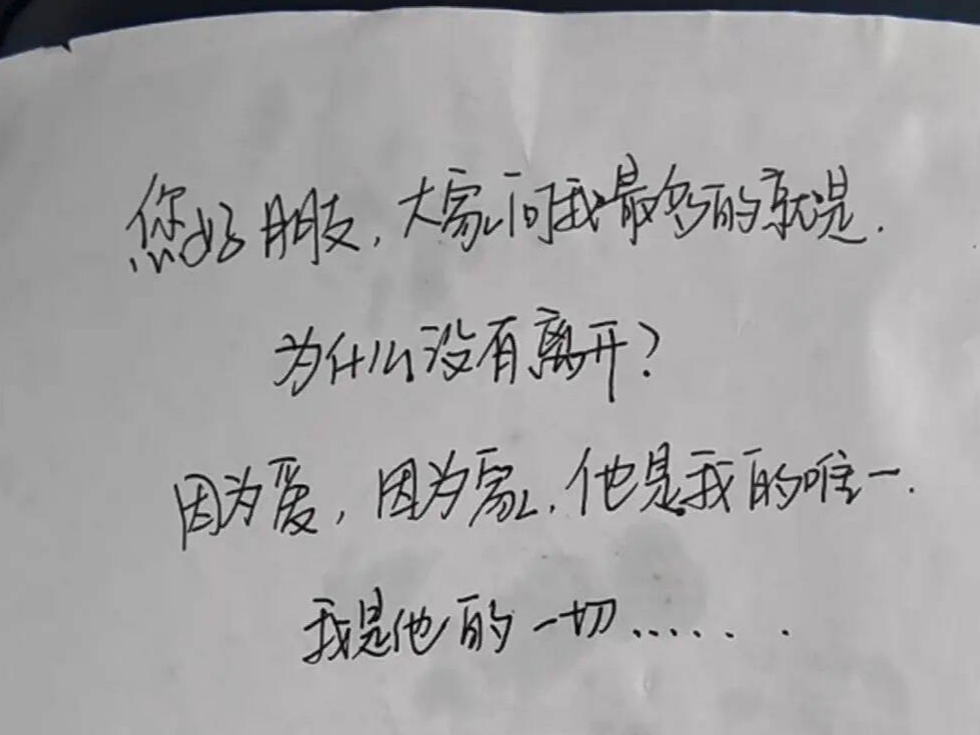 您好朋友,大家问我最多的就是.
为什么没有离开?
因为爱,因为家,他是我的唯一.
我是他的一切......